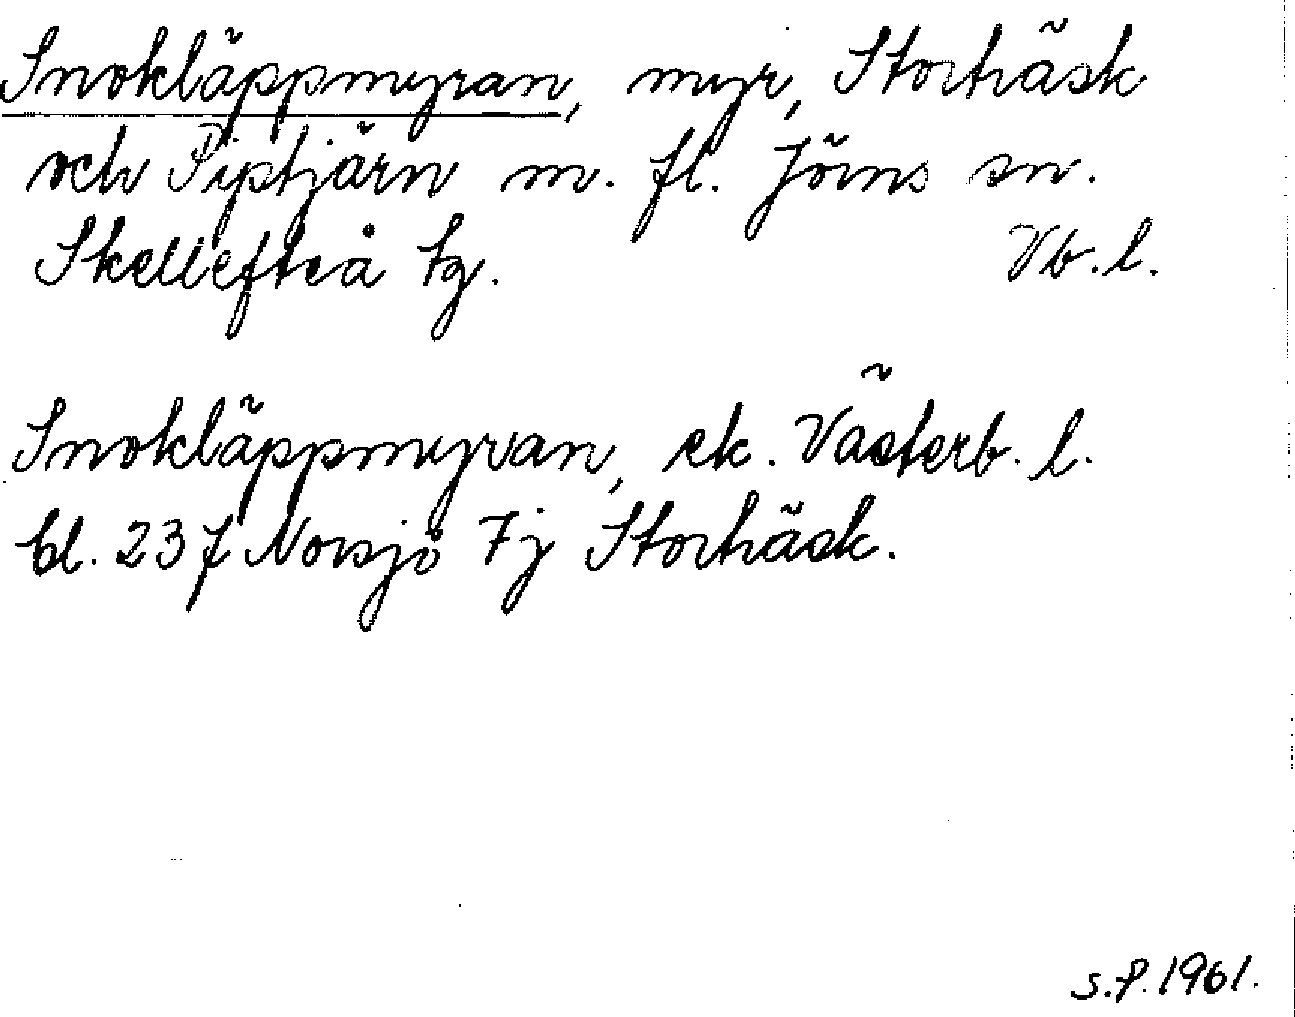 Snokläppmyran, myr, Storträsk
och Piptjärn m. fl. Jörns sn.
Skellefteå tg. Vb. l.
Snokläppmyran, ek. Västerb. l.
bl. 237 Norsjö 7j Storträsk.
S.P. 1961.